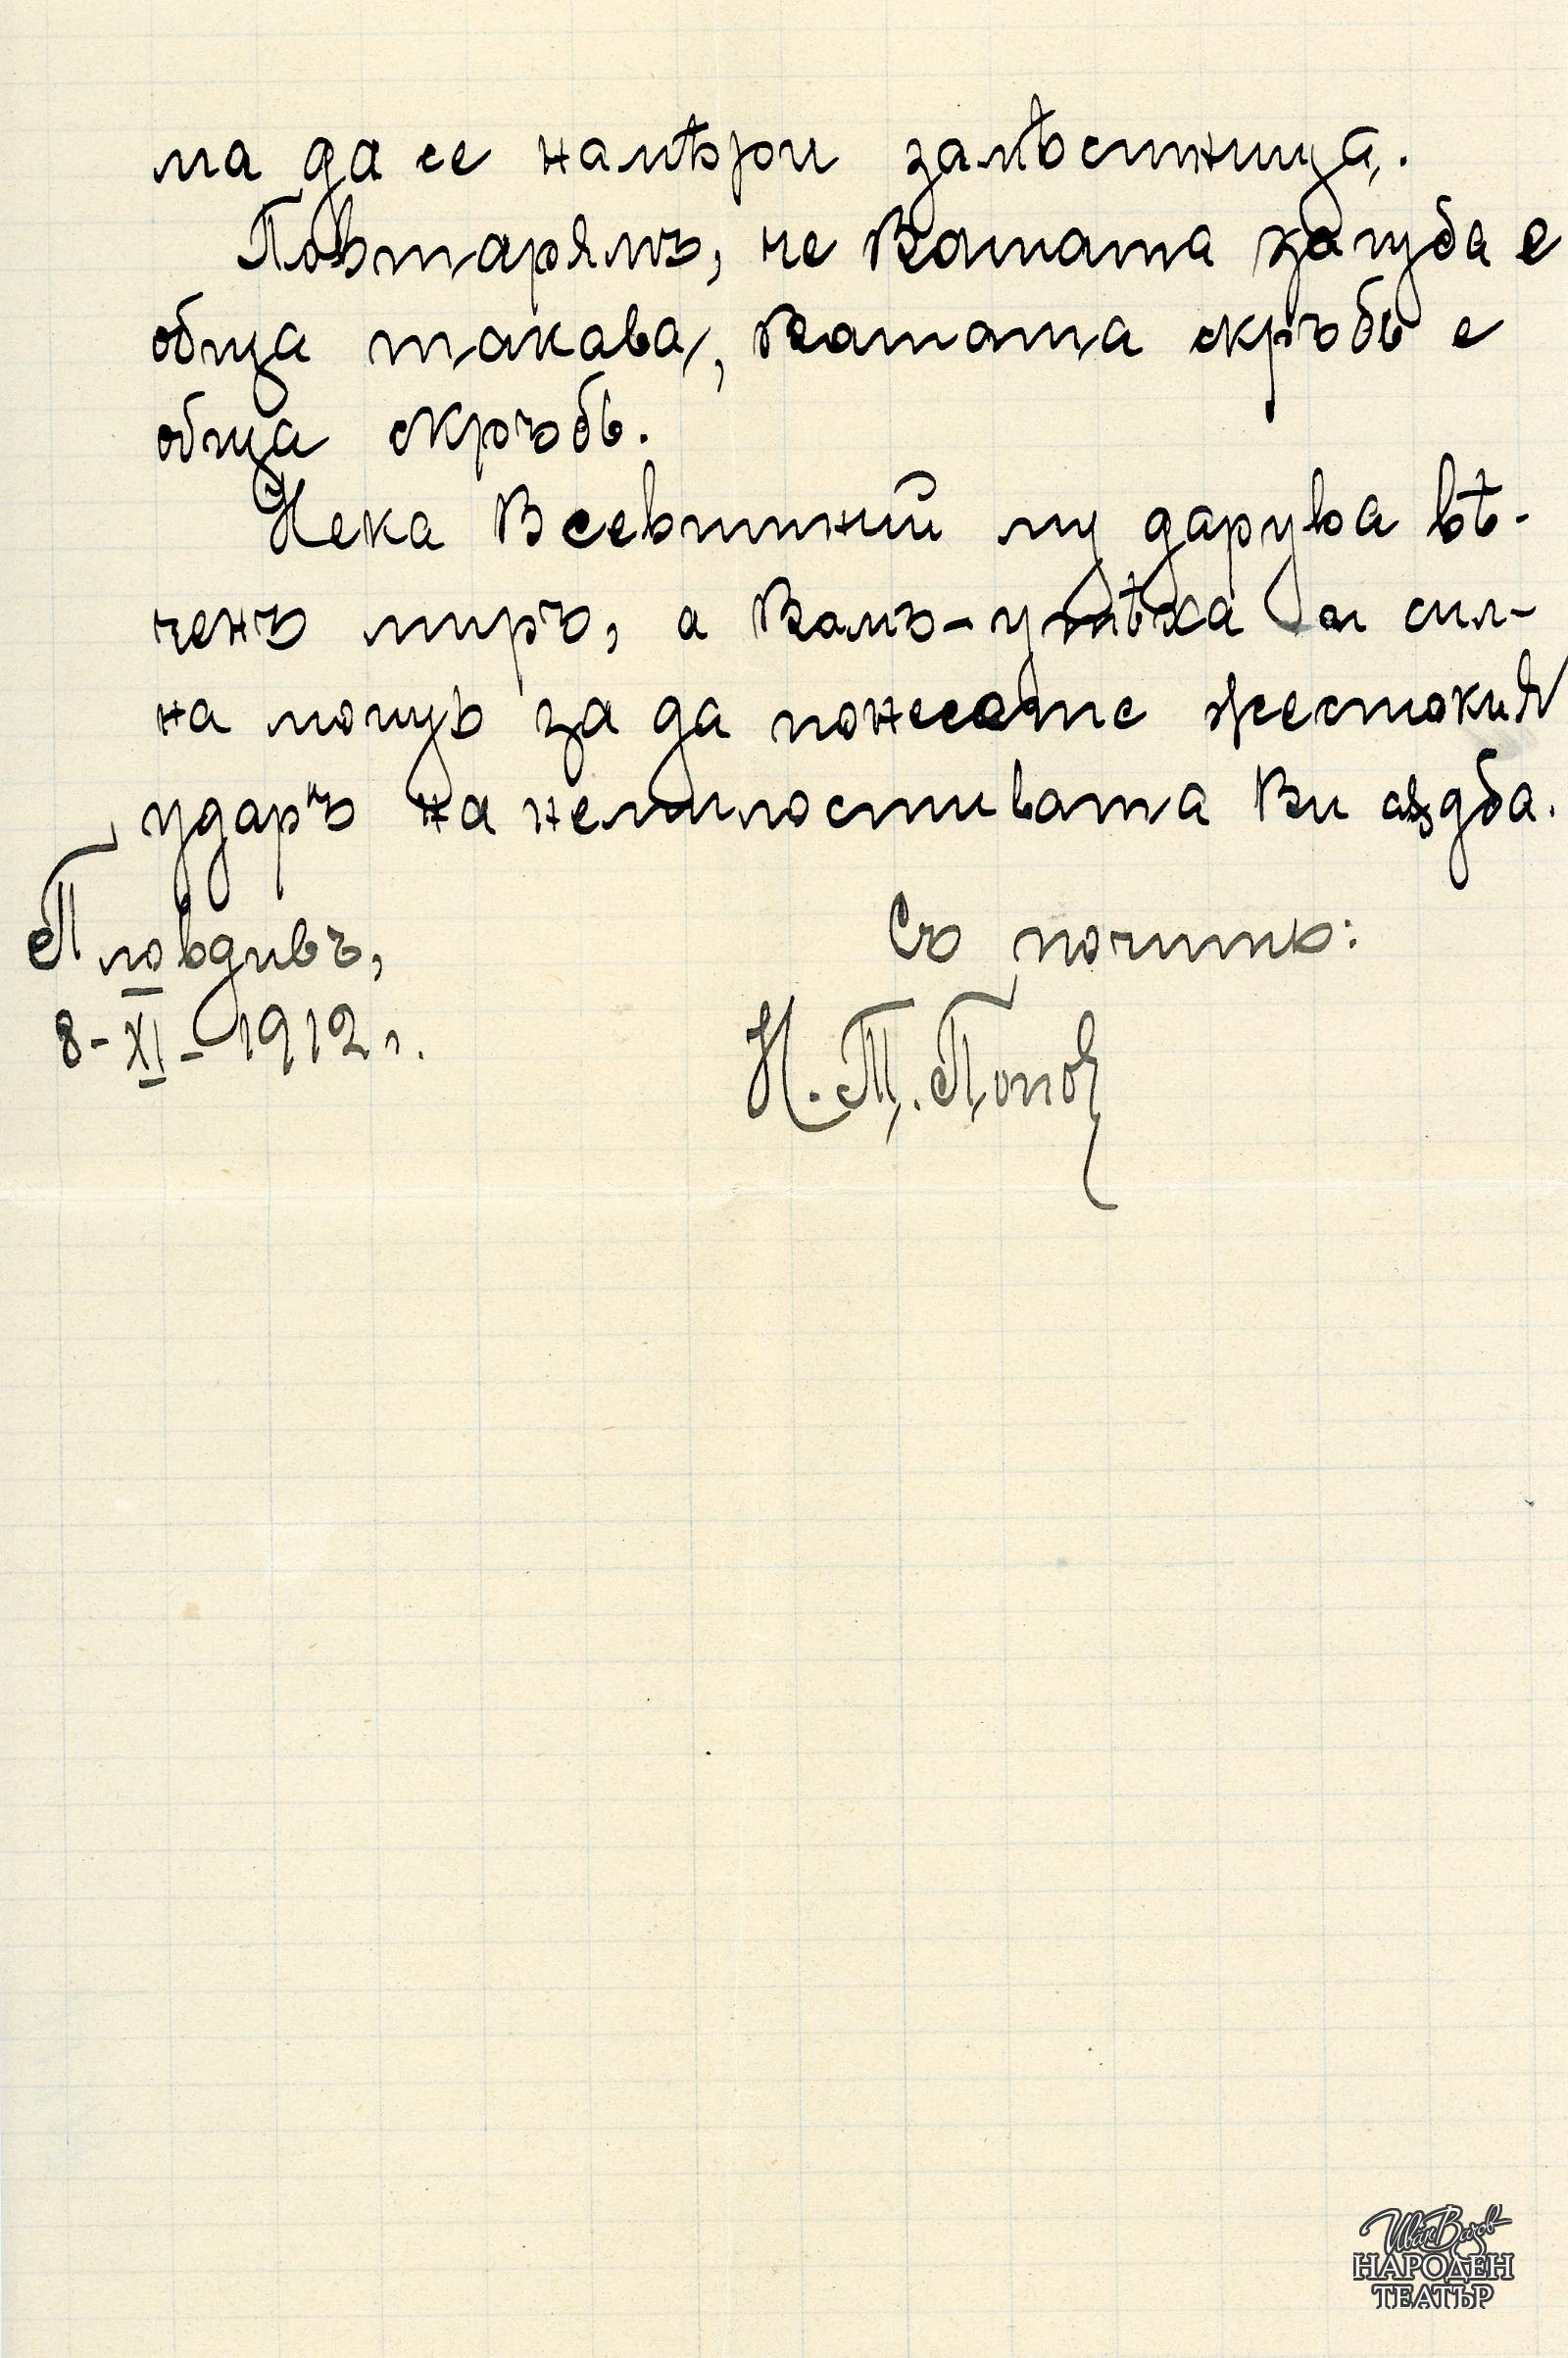 ма да се намѣри замѣстница.
Повтарямъ, че Вашата загуба е
обща такава, Вашата скръбь е
обща скръбь.
Нека Всевишний му дарува вѣ-
ченъ миръ, а Вамъ-утѣха и сил-
на мощь за да понесете жестокия
ударъ на немилостивата Ви сѫдба.
Пловдивъ,
8-XI-1912 г.
Съ почить:
Н. Т. Попов
Иван Вазов
НАРОДЕН
ТЕАТЪР